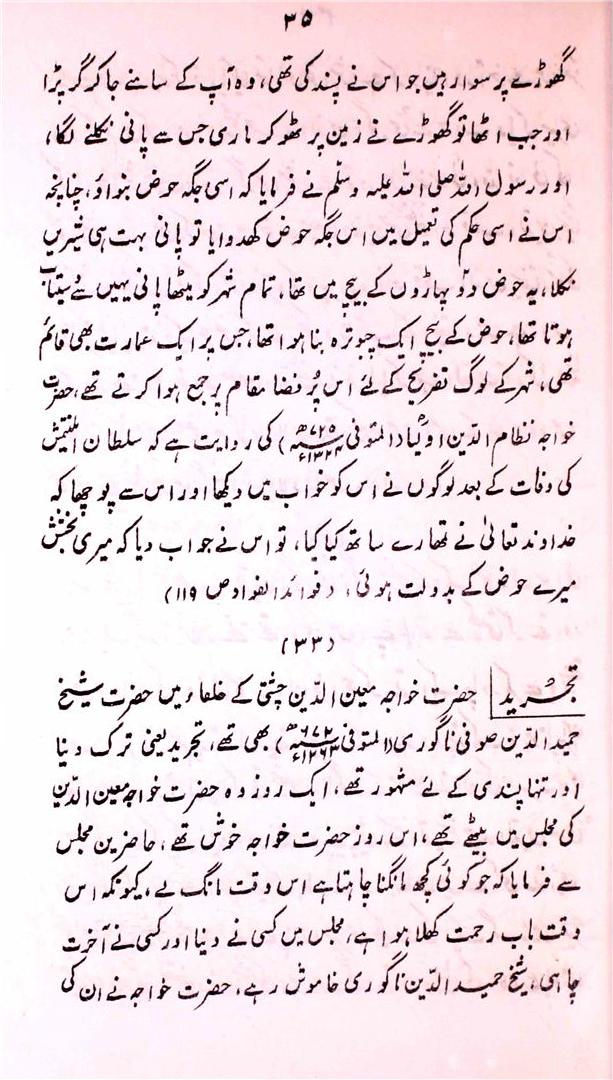 ۳۵
گھوڑے پر سوار ہیں جو اس نے پسند کی تھی، وہ آپ کے سامنے جا کر گر پڑا
اور جب اٹھا تو گھوڑے نے زمین پر ٹھوکر ماری جس سے پانی نکلنے لگا،
اور رسول اللہ صلی اللہ علیہ وسلم نے فرمایا کہ اسی جگہ حوض بنواؤ، چنانچہ
اس نے اسی حکم کی تعمیل میں اس جگہ حوض کھدوایا تو پانی بہت ہی شیریں
نکلا، یہ حوض دو پہاڑوں کے بیچ میں تھا، تمام شہر کو میٹھا پانی یہیں سے دستیاب
ہوتا تھا، حوض کے بیچ ایک چبوترہ بنا ہوا تھا، جس پر ایک عمارت بھی قائم
تھی، شہر کے لوگ تفریح کے لئے اس پُر فضا مقام پر جمع ہوا کرتے تھے، حضرت
خواجہ نظام الدین اولیاؒ (المتوفی ۷۲۵ھ ۱۳۲۴ء) کی روایت ہے کہ سلطان التمش
کی وفات کے بعد لوگوں نے اس کو خواب میں دیکھا اور اس سے پوچھا کہ
خداوند تعالیٰ نے تمھارے ساتھ کیا کیا، تو اس نے جواب دیا کہ میری بخشش
میرے حوض کے بدولت ہوئی، (فوائد الفواد ص ۱۱۹)
(۳۳)
تجرید حضرت خواجہ معین الدین چشتی کے خلفاء میں حضرت شیخ
حمید الدین صوفی ناگوری (المتوفی ۶۷۲ھ ۱۲۶۳ء) بھی تھے، تجرید یعنی ترک دنیا
اور تنہا پسندی کے لئے مشہور تھے، ایک روز وہ حضرت خواجہ معین الدین
کی مجلس میں بیٹھے تھے، اس روز حضرت خواجہ خوش تھے، حاضرین مجلس
سے فرمایا کہ جو کوئی کچھ مانگنا چاہتا ہے اس وقت مانگ لے، کیونکہ اس
وقت باب رحمت کھلا ہوا ہے، مجلس میں کسی نے دنیا اور کسی نے آخرت
چاہی، شیخ حمید الدین ناگوری خاموش رہے، حضرت خواجہ نے ان کی